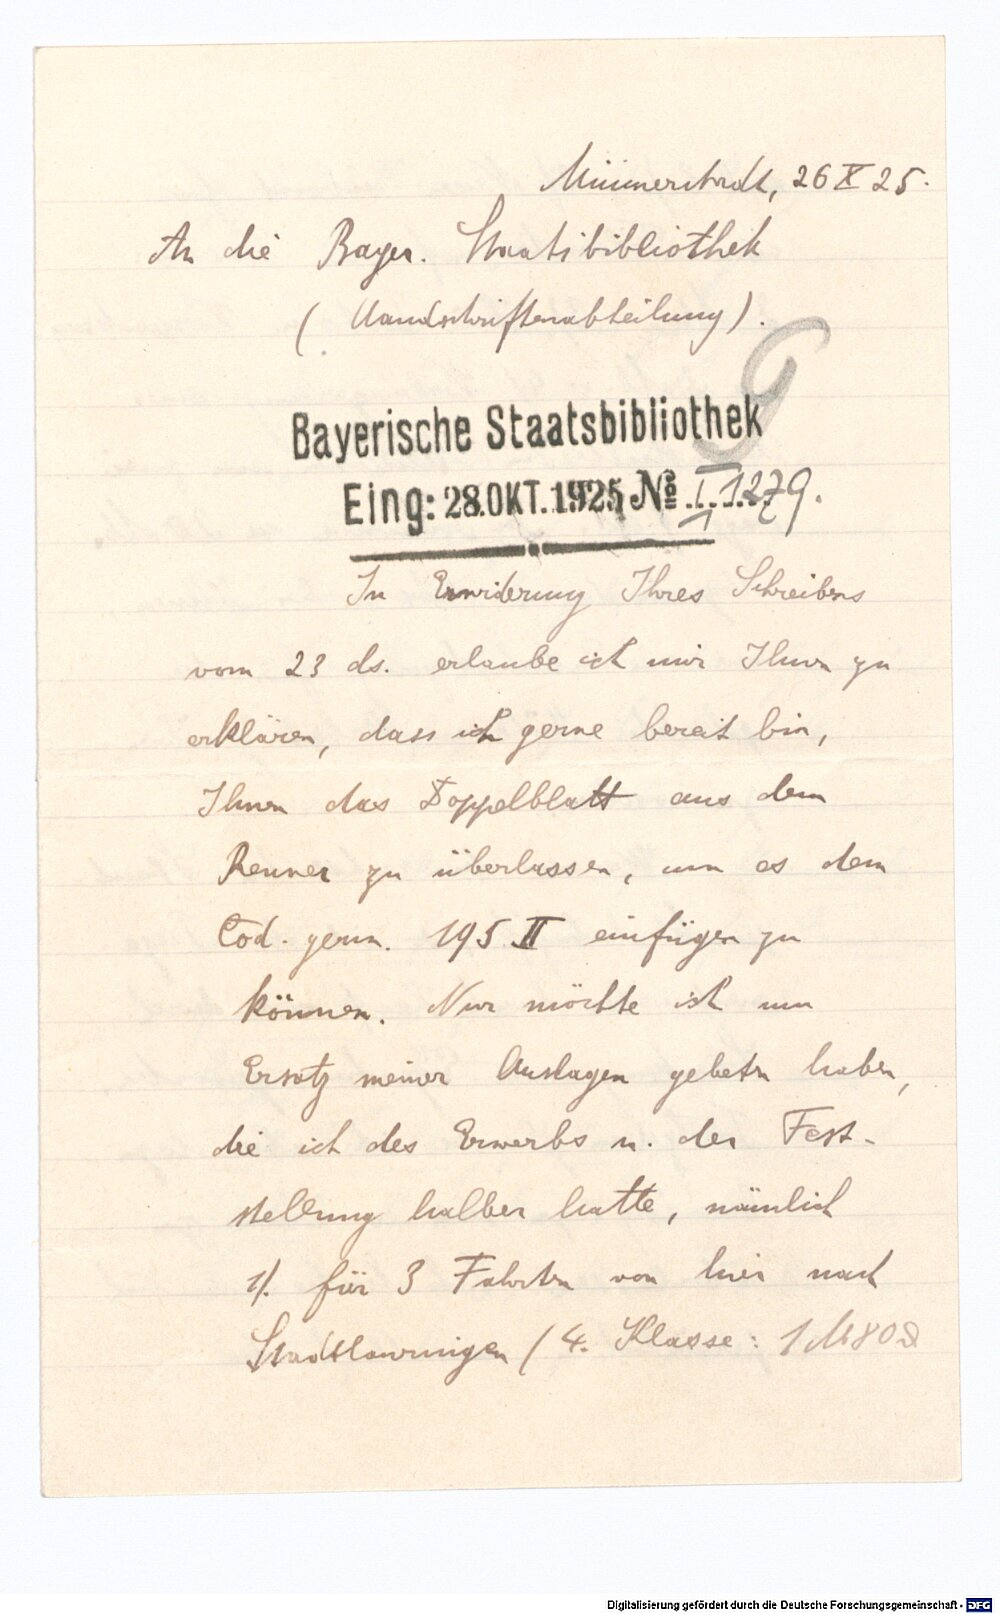 Münnerstadt, 26 X 25.
An die Bayer. Staatsbibliothek
(Handschriftenabteilung).
G
Bayerische Staatsbibliothek
Eing: 28. OKT. 1925 № I 1279.
In Erwiderung Ihres Schreibens
vom 23 ds. erlaube ich mir Ihnen zu
erklären, dass ich gerne bereit bin,
Ihnen das Doppelblatt aus dem
Renner zu überlassen, um es dem
Cod. germ. 195 II einfügen zu
können. Nur möchte ich um
Ersatz meiner Auslagen gebeten haben,
die ich des Erwerbs u. der Fest-
stellung halber hatte, nämlich
1). für 3 Fahrten von hier nach
Stadtlauringen (4. Klasse: 1 M 80 ₰
Digitalisierung gefördert durch die Deutsche Forschungsgemeinschaft - DFG